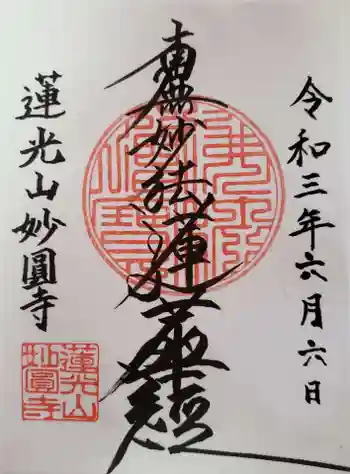 令和三年六月六日
南無妙法蓮華経
蓮光山妙圓寺
蓮光山
妙圓寺